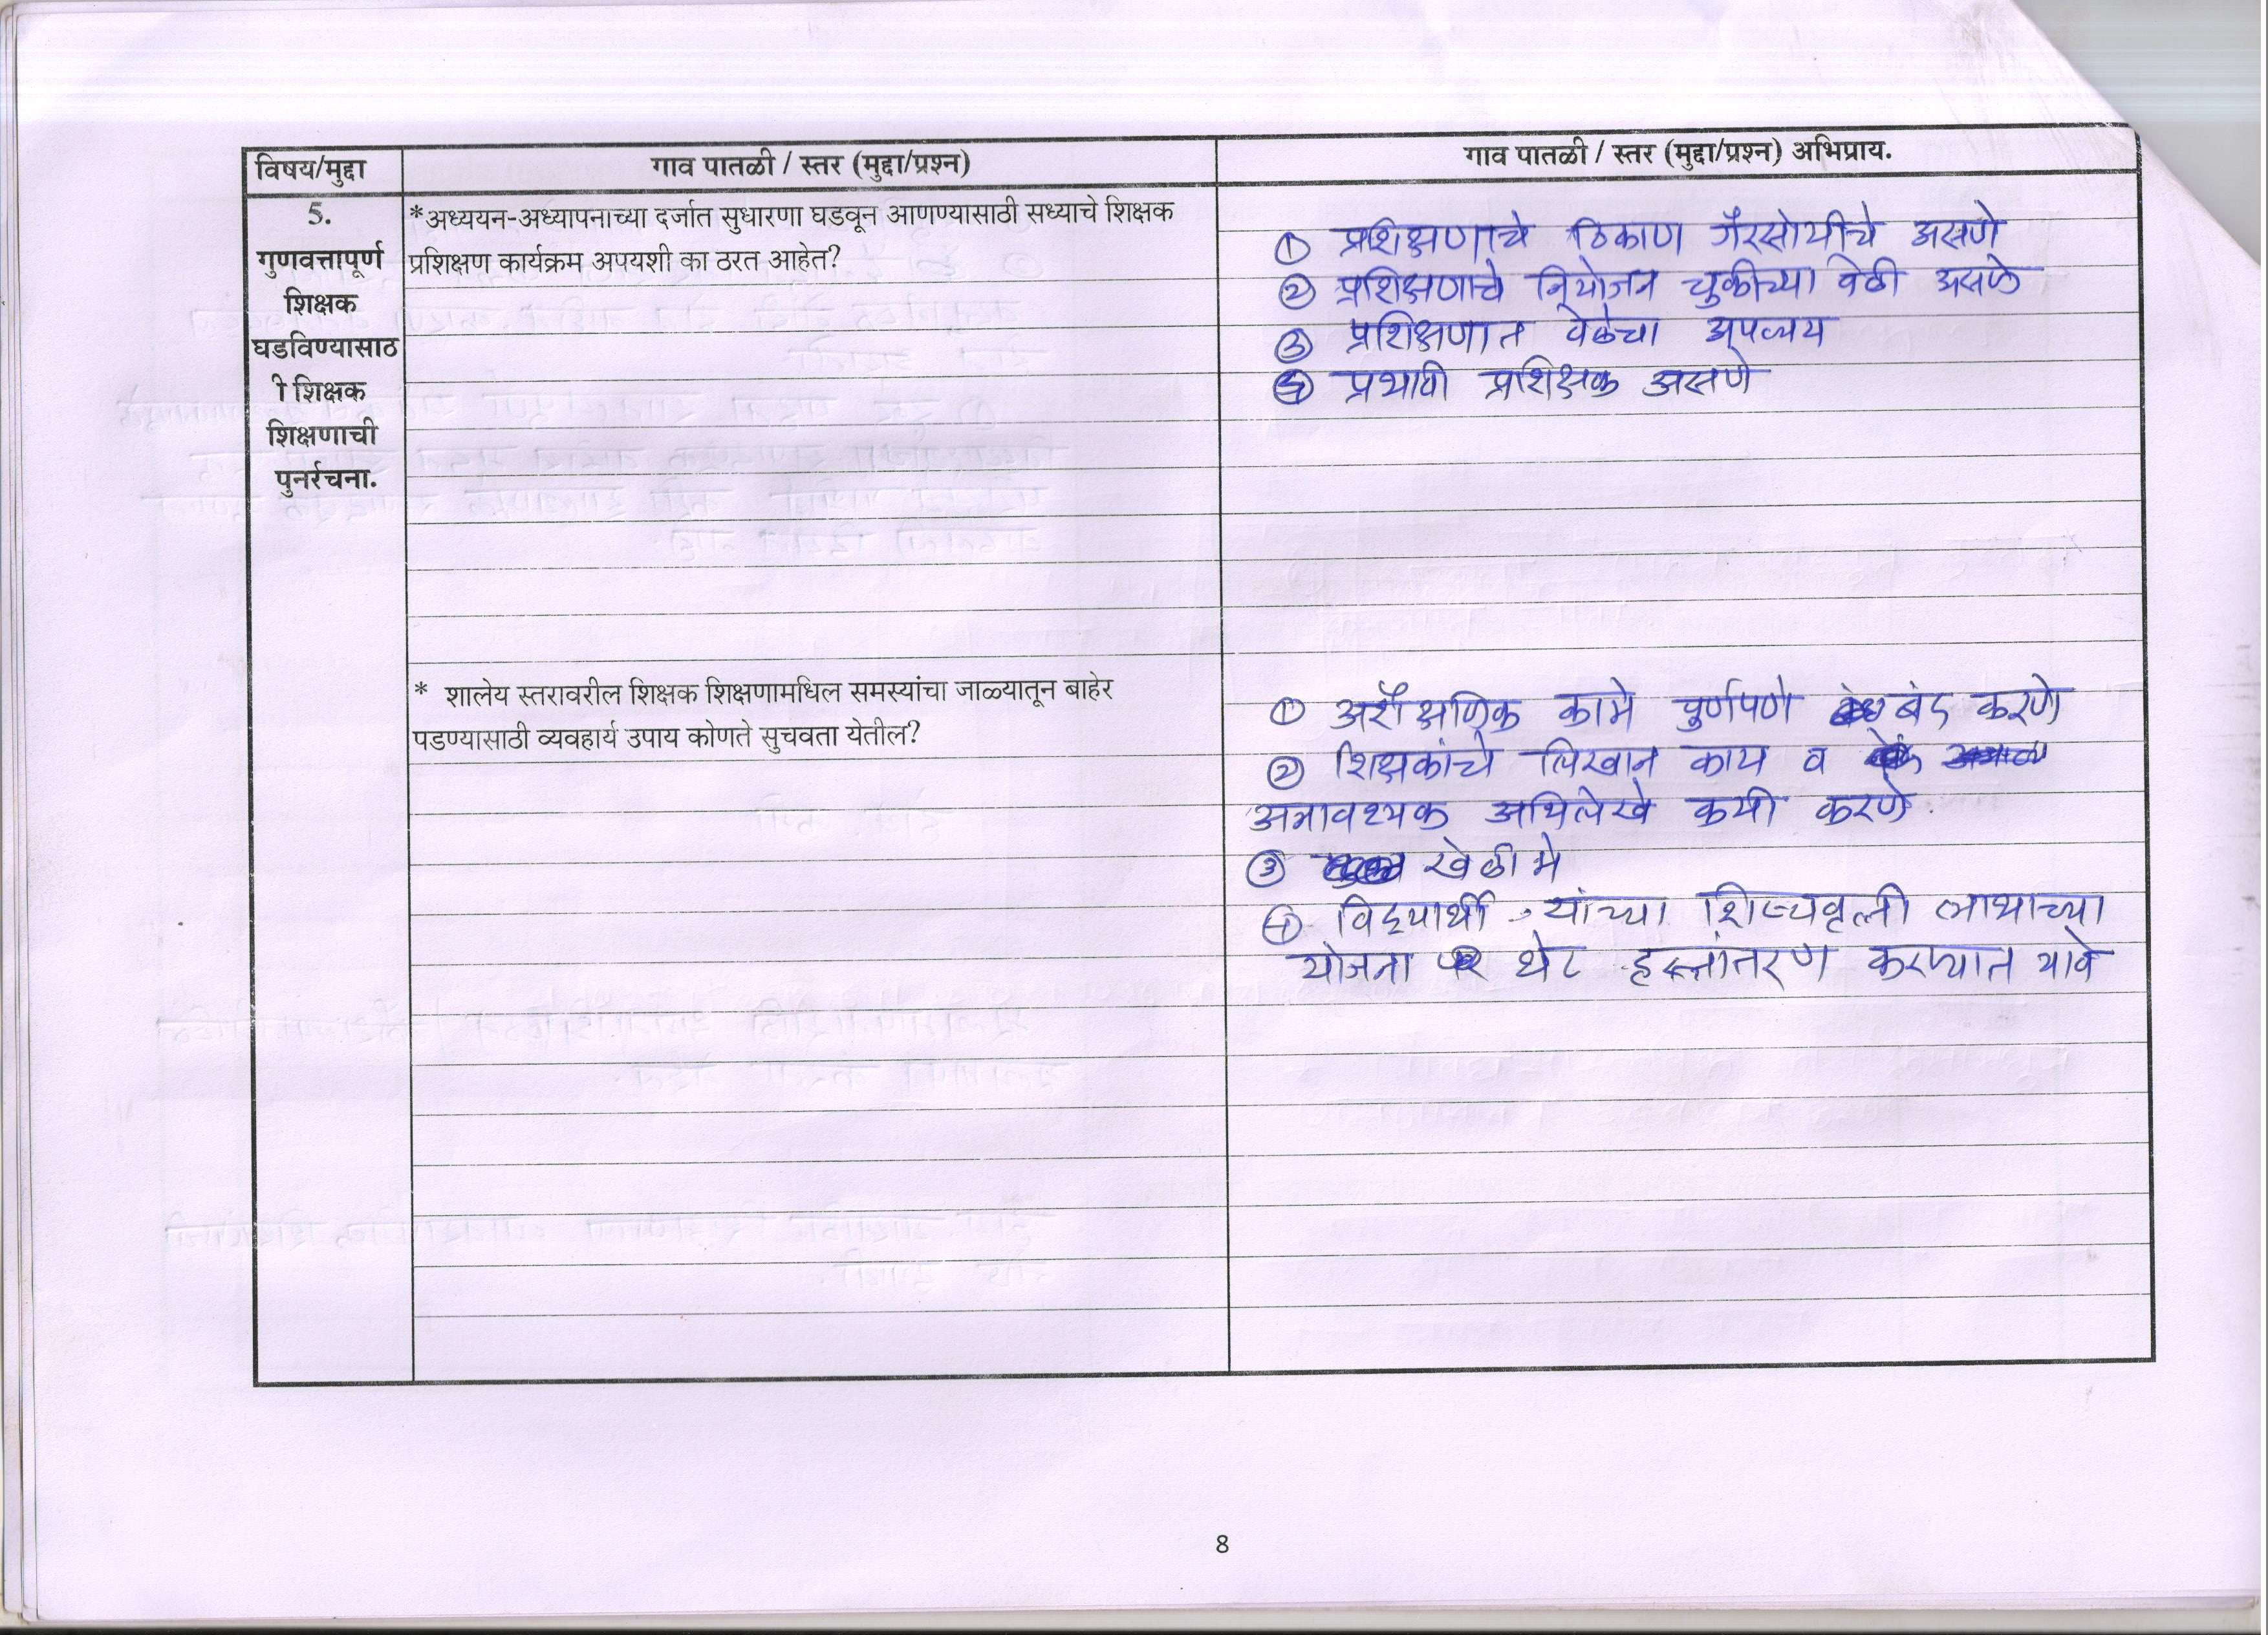 विषय/मुद्दा
गाव पातळी / स्तर (मुद्दा/प्रश्न)
गाव पातळी / स्तर (मुद्दा/प्रश्न) अभिप्राय.
5.
गुणवत्तापूर्ण
शिक्षक
घडविण्यासाठ
ी शिक्षक
शिक्षणाची
पुनर्रचना.
*अध्ययन-अध्यापनाच्या दर्जात सुधारणा घडवून आणण्यासाठी सध्याचे शिक्षक
प्रशिक्षण कार्यक्रम अपयशी का ठरत आहेत?
① प्रशिक्षणाचे ठिकाण गैरसोयीचे असणे
② प्रशिक्षणाचे नियोजन चुकीच्या वेळी असणे
③ प्रशिक्षणात वेळेचा अपव्यय
④ प्रभावी प्रशिक्षक असणे
* शालेय स्तरावरील शिक्षक शिक्षणामधिल समस्यांचा जाळ्यातून बाहेर
पडण्यासाठी व्यवहार्य उपाय कोणते सुचवता येतील?
① अशैक्षणिक कामे पुर्णपणे बंद करणे
② शिक्षकांचे लिखान काय व
अनावश्यक अभिलेखे कमी करणे.
③
④ विद्यार्थी यांच्या शिष्यवृत्ती लाभाच्या
योजना थेट हस्तांतरण करण्यात यावे
8